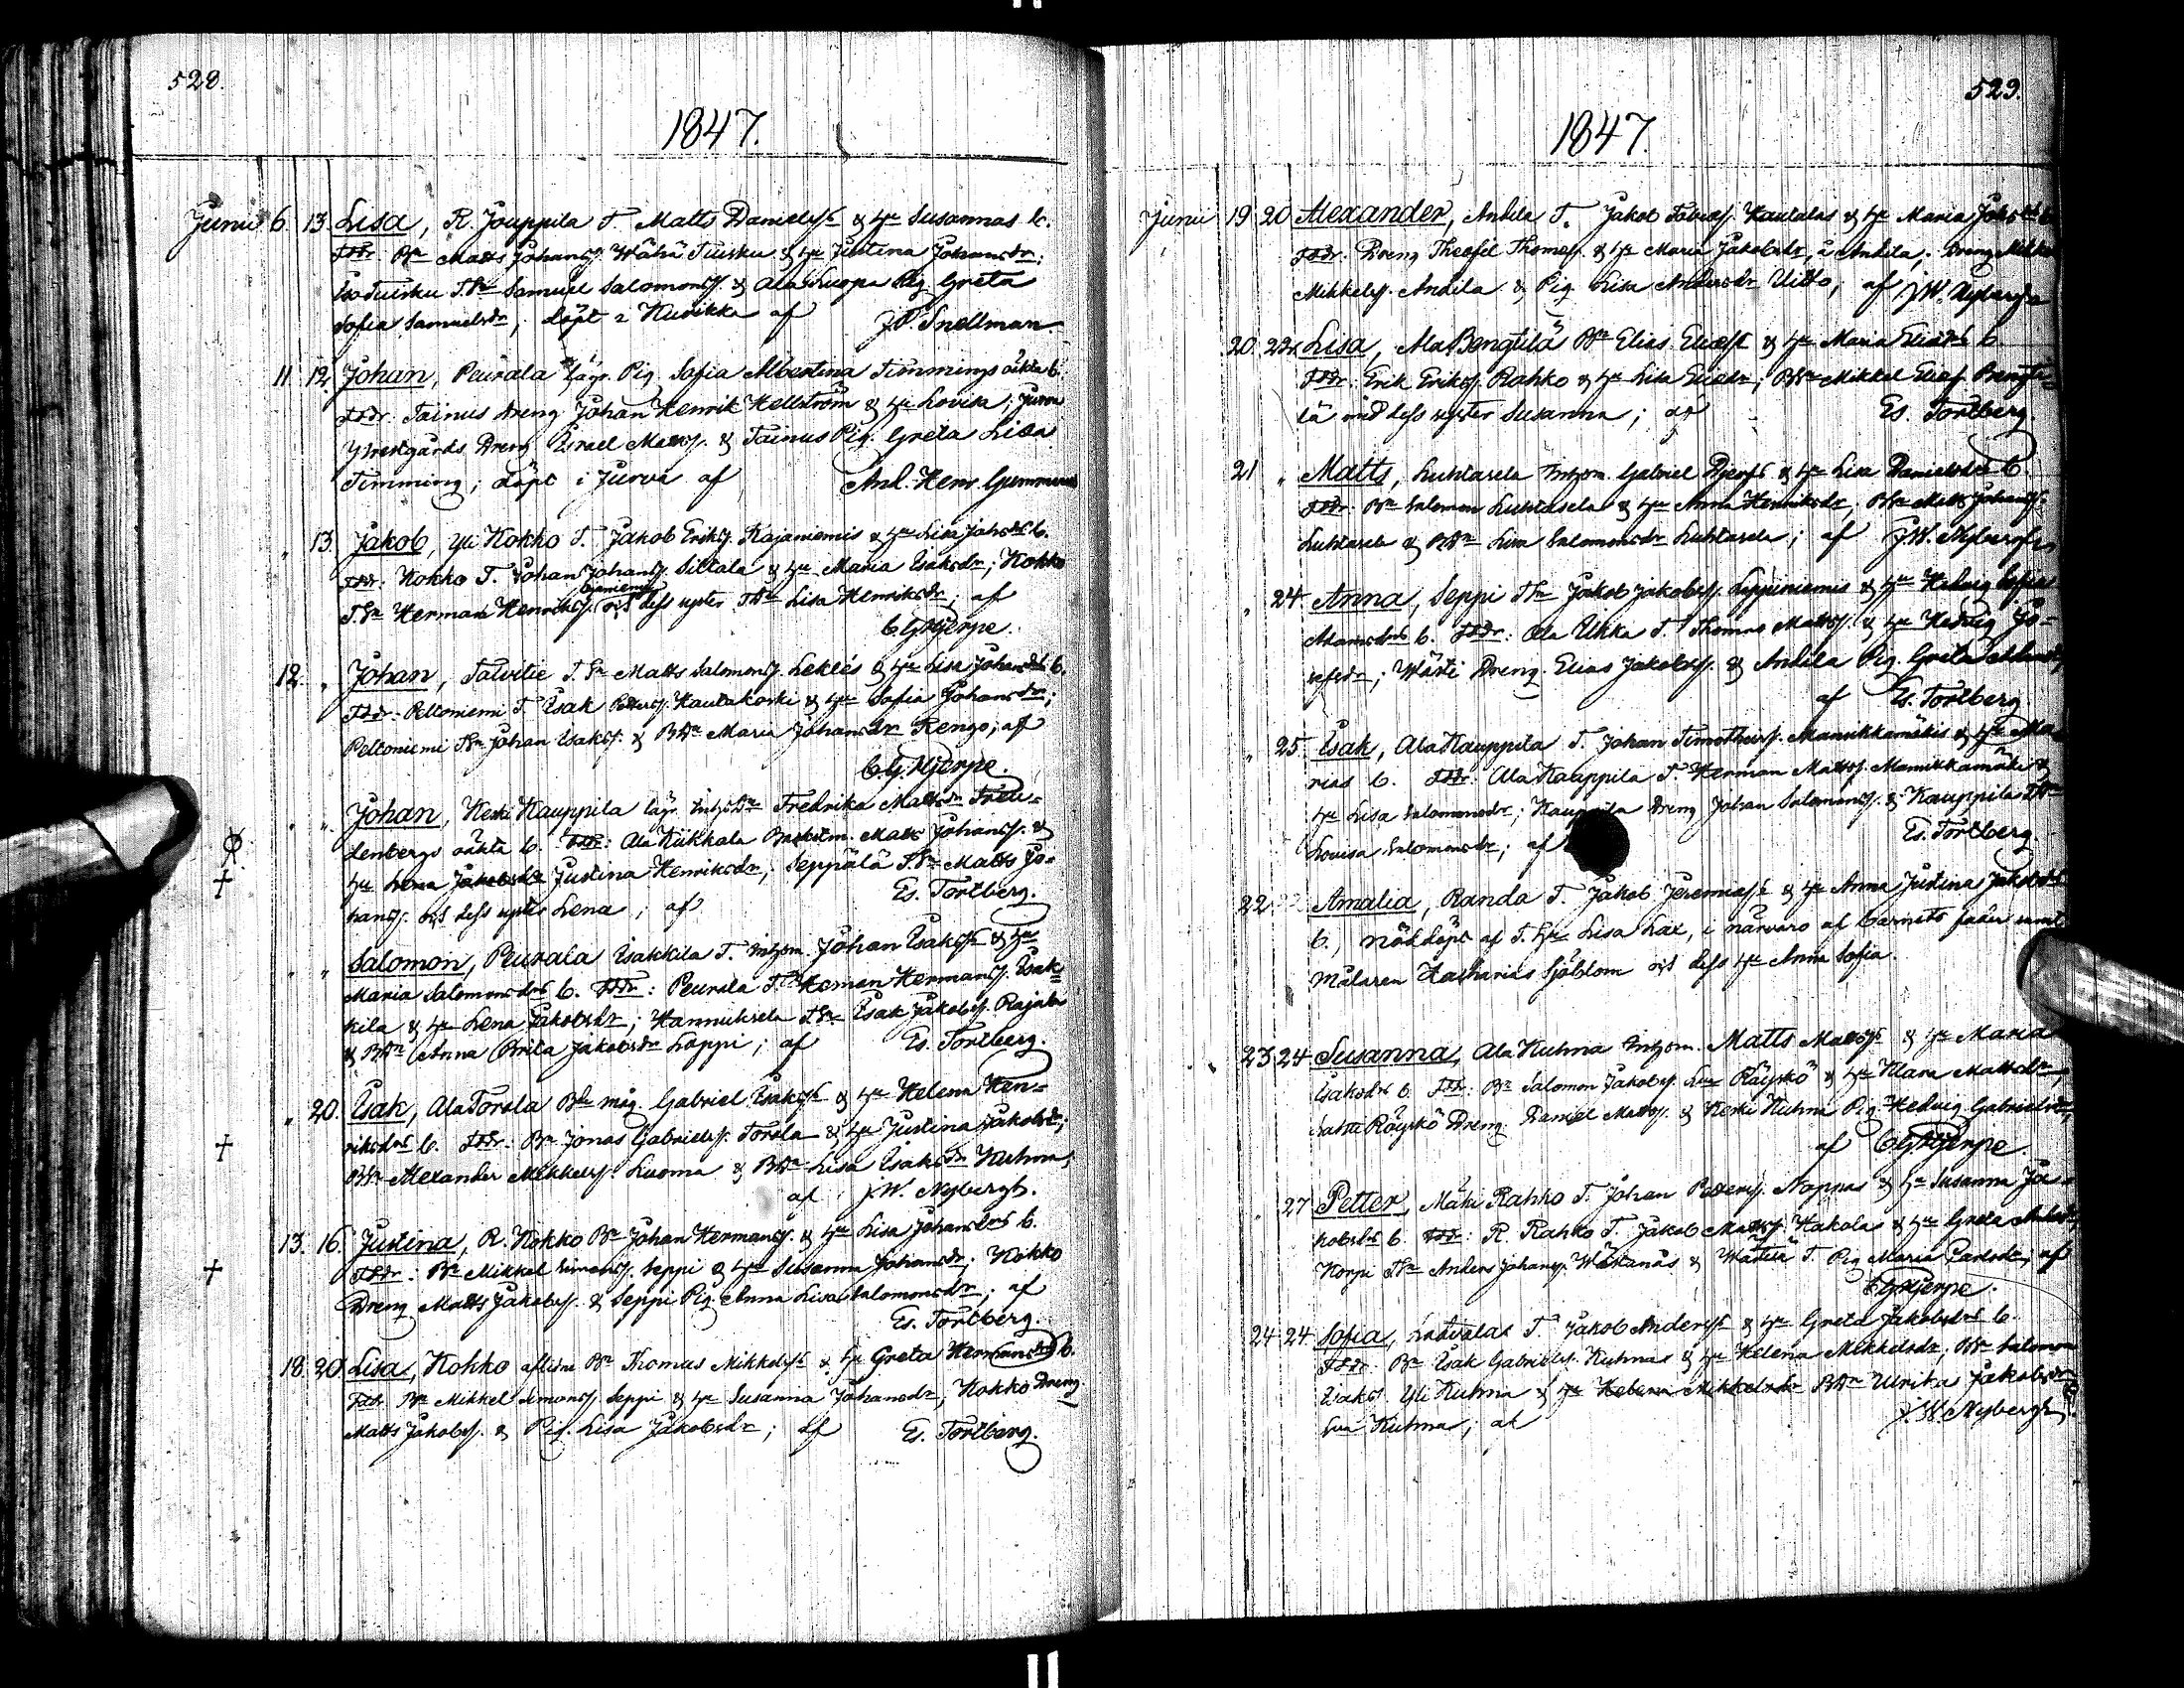 528.
1847.
Junii 6. 13. Lisa, R. Jouppila T. Matts Danielss. & Hu Susannas b.
Fddr. Bn Matts Johanss. Wähä Tuisku & Hu Justina Johansdr;
Iso Tuisku T.Sn Samuel Salomonss. & Ala Luopa Pig. Greta
Sofia Samuelsdr; döpt i Kurikka af J. P. Snellman
11. 12. Johan, Peurala lägr. Pig. Sofia Albertina Timmings oäkta b.
Fddr. Tainus Dreng Johan Henrik Hellström & Hu Lovisa; Jurva
Dreng Israel Matss. & Tainus Pig. Greta Lisa
Timming; döpt i Jurva af And. Henr. Gummerus
" 13. Jakob, Yli Kokko T. Jakob Erikss. Kajaniemis & Hu Lisa Johsdrs b.
Fddr: Kokko T. Johan Johanss. Siltala & Hu Maria Isaksdr; Kokko
T.Sn Herman Henrikss. och dess syster T.Dr Lisa Henriksdr; af
C. G. Hjerpe.
12. " Johan, Talvitie T.Sn Matts Salomonss. Leklés & Hu Lisa Johansdrs b.
Fddr: Peltoniemi T. Isak Petterss. Kautakoski & Hu Sofia Johansdr;
Peltoniemi T.Sn Johan Isakss. & B.Dr Maria Johansdr Rengo; af
C. G. Hjerpe.
" " Johan, Keski Kauppila lägr. Fredrika Mattsdr Fride-
lenbergs oäkta b. Fddr: Ala Kiikkala Matts Johanss. &
Hu Lena Jakobsdr Justina Henriksdr; Seppälä T.Sn Matts Jo-
hanss. och dess syster Lena; af Es. Tortberg.
" " Salomon, Peurala Isakkila T. Inhysm. Johan Isakss. & Hu
Maria Salomonsdrs b. Fddr: Peurala T. Herman Hermanss. Isak-
kila & Hu Lena Jakobsdr; Hannuksela T.Sn Isak Jakobss. Rajala
& B.Dr Anna Brita Jakobsdr Loppi; af Es. Tortberg.
" 20. Isak, Ala Torsla Bde måg Gabriel Isakss. & Hu Helena Hen-
riksdrs b. Fddr: Bn Jonas Gabrielss. Torsla & Hu Justina Jakobsdr;
B.Sn Alexander Mikkelss. Luoma & B.Dr Lisa Isaksdr Kuhna;
af J. W. Nybergh.
13. 16. Justina, R. Kokko Bn Johan Hermanss. & Hu Lisa Johansdrs b.
Fddr: Bn Mikkel Simonss. Seppi & Hu Susanna Johansdr; Kokko
Dreng Matts Jakobss. & Seppi Pig. Anna Lisa Salomonsdr; af
Es. Tortberg.
18. 20. Lisa, Kokko aflidne Bn Thomas Mikkelss. & Hu Greta Hermansdrs b.
Fddr Bn Mikkel Simonss. Seppi & Hu Susanna Johansdr; Kokko Dreng
Matts Jakobss. & Pig. Lisa Jakobsdr; af Es. Tortberg.
529.
1847.
Junii 19 20 Alexander, Andila T. Jakob Tobiass. Kautalas & Hu Maria Johsdrs b.
Fddr. Dreng Theofil Thomass. & Hu Maria Jakobsdr, å Andila; Dreng Mikkel
Mikkelss. Andila & Pig. Lisa Andersdr Uitto, af J. W. Nybergh
20. 22. Lisa, Ala Bengtilä Bn Elias Eliass. & Hu Maria Eliædrs b.
Fddr: Erik Erikss. Rahko & Hu Lisa Eliædr; B.Sn Mikkel Eliass. Bengti-
lä med dess syster Susanna; af Es. Tortberg.
21 " Matts, Luhtasela Inhysm. Gabriel & Hu Lisa Danielsdrs b.
Fddr. Bn Salomon Luhtasela & Hu Anna Henriksdr; B.Sn Matts Johanss.
Luhtasela & B.Dr Lisa Salomonsdr Luhtasela; af J. W. Nybergh
" 24. Anna, Seppi T.Sn Jakob Jakobss. Leppiniemis & Hu Hedvig Sofia
Adamsdrs b. Fddr: Ala Ukka T. Thomas Matss. & Hu Hedvig Jo-
sefsdr; Wästi Dreng Elias Jakobss. & Andila Pig. Greta
af Es. Tortberg
" 25. Isak, Ala Kauppila T. Johan Timotheuss. Mansikkamäkis & Hu Ma-
rias b. Fddr: Ala Kauppila T. Herman Matss. Mansikkamäki &
Hu Lisa Salomonsdr; Kauppila Dreng Johan Salomonss. & Kauppila T.Dr
Lovisa Salomonsdr; af Es. Tortberg.
22. Amalia, Randa T. Jakob Jeremiass. & Hu Anna Justinas Jakobsdrs
b., nöddöpt af T. Hu Lisa Lax, i närvaro af barnets fader samt
Målaren Zacharias Sjöblom och dess Hu Anna Sofia.
23 24 Susanna, Ala Kuhna Inhysm. Matts Matss. & Hu Maria
Isaksdrs b. Fddr: Bn Salomon Jakobss. Röyskö & Hu Klara Mattsdr;
Röyskö Dreng Daniel Matss. & Keski Kuhna Pig. Hedvig Gabrielsdr;
af C. G. Hjerpe.
" 27 Petter, Mäki Rahko T. Johan Petterss. Noppas & Hu Susanna Ja-
kobsdrs b. Fddr: R. Rahko T. Jakob Matss. Hakola & Hu Greta
Korpi T.Sn Anders Johanss. & T. Pig. Maria Carlsdr; af
C. G. Hjerpe.
24 24. Sofia, Latvalas T. Jakob Anderss. & Hu Greta Jakobsdrs b.
Fddr. Bn Isak Gabrielss. Kuhnas & Hu Helena Mikkelsdr; B.Sn Salomon
Isakss. Yli Kuhna & Hu Helena Mikkelsdr B.Dr Ulrika Jakobsdr
Kuhna; af J. W. Nybergh.